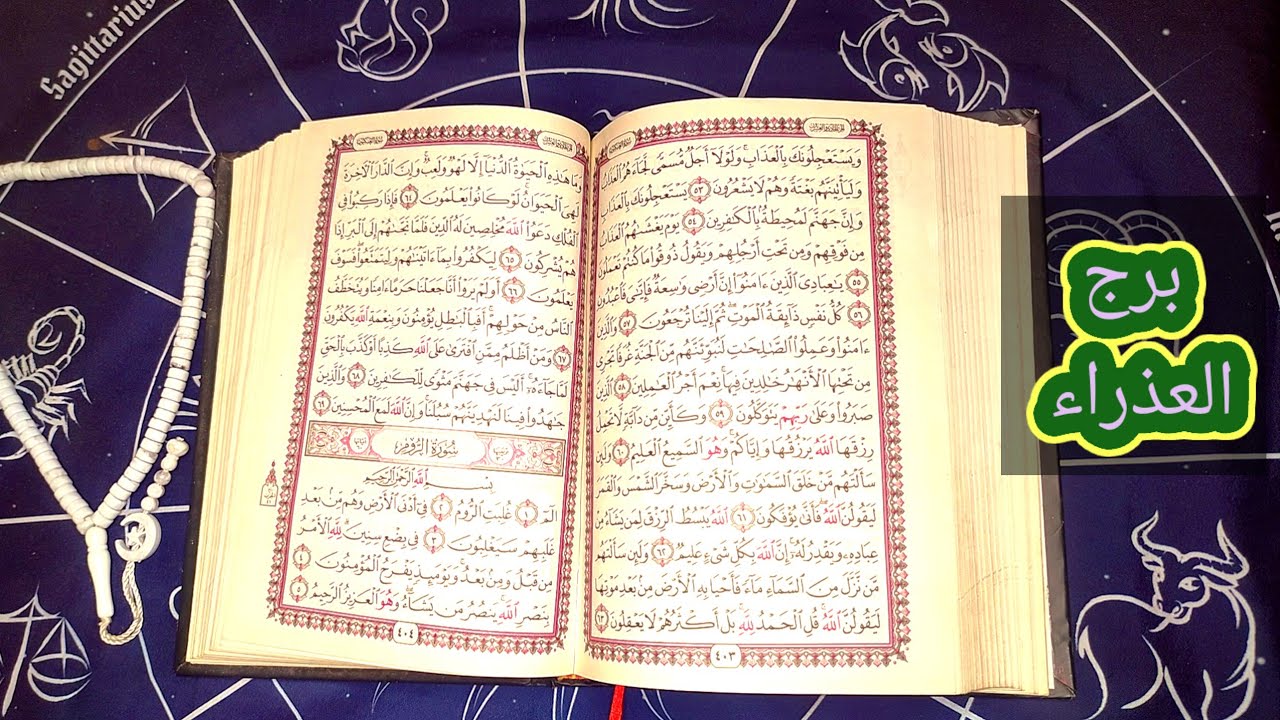 Sagittarius
برج
العذراء
وَيَسْتَعْجِلُونَكَ بِالْعَذَابِ وَلَوْلَا أَجَلٌ مُّسَمًّى لَّجَاءَهُمُ الْعَذَابُ
وَلَيَأْتِيَنَّهُم بَغْتَةً وَهُمْ لَا يَشْعُرُونَ ٥٣ يَسْتَعْجِلُونَكَ بِالْعَذَابِ
وَإِنَّ جَهَنَّمَ لَمُحِيطَةٌ بِالْكَٰفِرِينَ ٥٤ يَوْمَ يَغْشَىٰهُمُ الْعَذَابُ
مِن فَوْقِهِمْ وَمِن تَحْتِ أَرْجُلِهِمْ وَيَقُولُ ذُوقُوا مَا كُنتُمْ تَعْمَلُونَ
٥٥ يَٰعِبَادِيَ الَّذِينَ ءَامَنُوا إِنَّ أَرْضِي وَٰسِعَةٌ فَإِيَّٰيَ فَاعْبُدُونِ
٥٦ كُلُّ نَفْسٍ ذَائِقَةُ الْمَوْتِ ثُمَّ إِلَيْنَا تُرْجَعُونَ ٥٧ وَالَّذِينَ
ءَامَنُوا وَعَمِلُوا الصَّٰلِحَٰتِ لَنُبَوِّئَنَّهُم مِّنَ الْجَنَّةِ غُرَفًا تَجْرِي
مِن تَحْتِهَا الْأَنْهَٰرُ خَٰلِدِينَ فِيهَا نِعْمَ أَجْرُ الْعَٰمِلِينَ ٥٨ الَّذِينَ
صَبَرُوا وَعَلَىٰ رَبِّهِمْ يَتَوَكَّلُونَ ٥٩ وَكَأَيِّن مِّن دَابَّةٍ لَّا تَحْمِلُ
رِزْقَهَا اللَّهُ يَرْزُقُهَا وَإِيَّاكُمْ وَهُوَ السَّمِيعُ الْعَلِيمُ ٦٠ وَلَئِن
سَأَلْتَهُم مَّنْ خَلَقَ السَّمَٰوَٰتِ وَالْأَرْضَ وَسَخَّرَ الشَّمْسَ وَالْقَمَرَ
لَيَقُولُنَّ اللَّهُ فَأَنَّىٰ يُؤْفَكُونَ ٦١ اللَّهُ يَبْسُطُ الرِّزْقَ لِمَن يَشَاءُ مِنْ
عِبَادِهِ وَيَقْدِرُ لَهُ إِنَّ اللَّهَ بِكُلِّ شَيْءٍ عَلِيمٌ ٦٢ وَلَئِن سَأَلْتَهُم
مَّن نَّزَّلَ مِنَ السَّمَاءِ مَاءً فَأَحْيَا بِهِ الْأَرْضَ مِن بَعْدِ مَوْتِهَا
لَيَقُولُنَّ اللَّهُ قُلِ الْحَمْدُ لِلَّهِ بَلْ أَكْثَرُهُمْ لَا يَعْقِلُونَ ٦٣
٤٠٣
وَمَا هَٰذِهِ الْحَيَوٰةُ الدُّنْيَا إِلَّا لَهْوٌ وَلَعِبٌ وَإِنَّ الدَّارَ الْآخِرَةَ
لَهِيَ الْحَيَوَانُ لَوْ كَانُوا يَعْلَمُونَ ٦٤ فَإِذَا رَكِبُوا فِي
الْفُلْكِ دَعَوُا اللَّهَ مُخْلِصِينَ لَهُ الدِّينَ فَلَمَّا نَجَّىٰهُمْ إِلَى الْبَرِّ إِذَا
هُمْ يُشْرِكُونَ ٦٥ لِيَكْفُرُوا بِمَا ءَاتَيْنَٰهُمْ وَلِيَتَمَتَّعُوا فَسَوْفَ
يَعْلَمُونَ ٦٦ أَوَلَمْ يَرَوْا أَنَّا جَعَلْنَا حَرَمًا ءَامِنًا وَيُتَخَطَّفُ
النَّاسُ مِنْ حَوْلِهِمْ أَفَبِالْبَٰطِلِ يُؤْمِنُونَ وَبِنِعْمَةِ اللَّهِ يَكْفُرُونَ
٦٧ وَمَنْ أَظْلَمُ مِمَّنِ افْتَرَىٰ عَلَى اللَّهِ كَذِبًا أَوْ كَذَّبَ بِالْحَقِّ
لَمَّا جَاءَهُ أَلَيْسَ فِي جَهَنَّمَ مَثْوًى لِّلْكَٰفِرِينَ ٦٨ وَالَّذِينَ
جَٰهَدُوا فِينَا لَنَهْدِيَنَّهُمْ سُبُلَنَا وَإِنَّ اللَّهَ لَمَعَ الْمُحْسِنِينَ ٦٩
سُورَةُ الرُّومِ
بِسْمِ اللَّهِ الرَّحْمَٰنِ الرَّحِيمِ
الٓمٓ ١ غُلِبَتِ الرُّومُ ٢ فِي أَدْنَى الْأَرْضِ وَهُم مِّن بَعْدِ
غَلَبِهِمْ سَيَغْلِبُونَ ٣ فِي بِضْعِ سِنِينَ لِلَّهِ الْأَمْرُ
مِن قَبْلُ وَمِن بَعْدُ وَيَوْمَئِذٍ يَفْرَحُ الْمُؤْمِنُونَ ٤
بِنَصْرِ اللَّهِ يَنصُرُ مَن يَشَاءُ وَهُوَ الْعَزِيزُ الرَّحِيمُ ٥
٤٠٤